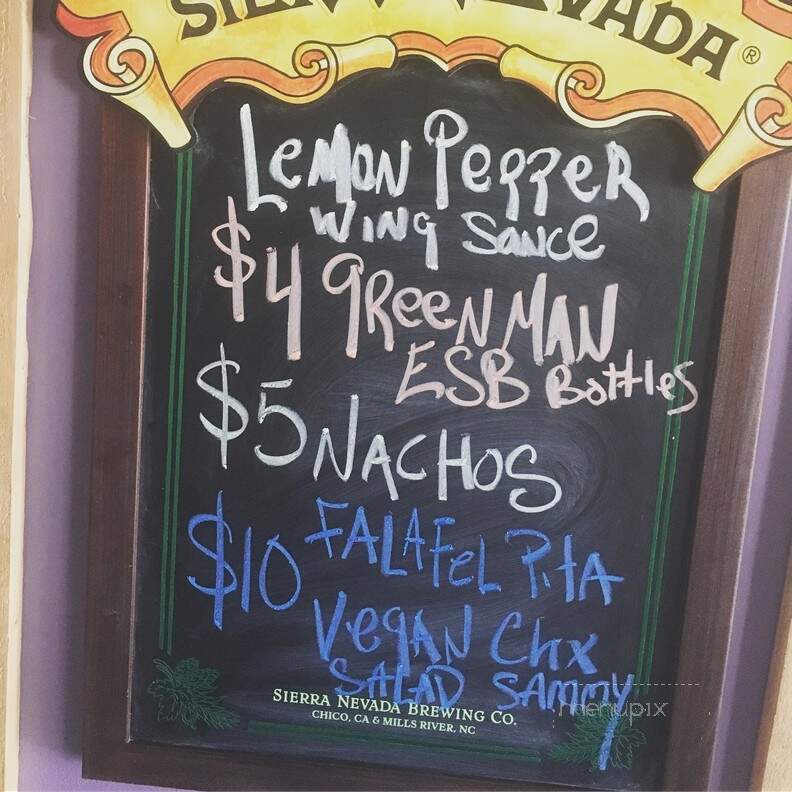 SIERRA NEVADA®
LEMON PEPPER
WING SAUCE
$4 GREEN MAN
ESB Bottles
$5 NACHOS
$10 FALAFEL PitA
VEGAN Chx
SALAD SAMMY
SIERRA NEVADA BREWING CO.
CHICO, CA & MILLS RIVER, NC
menupix